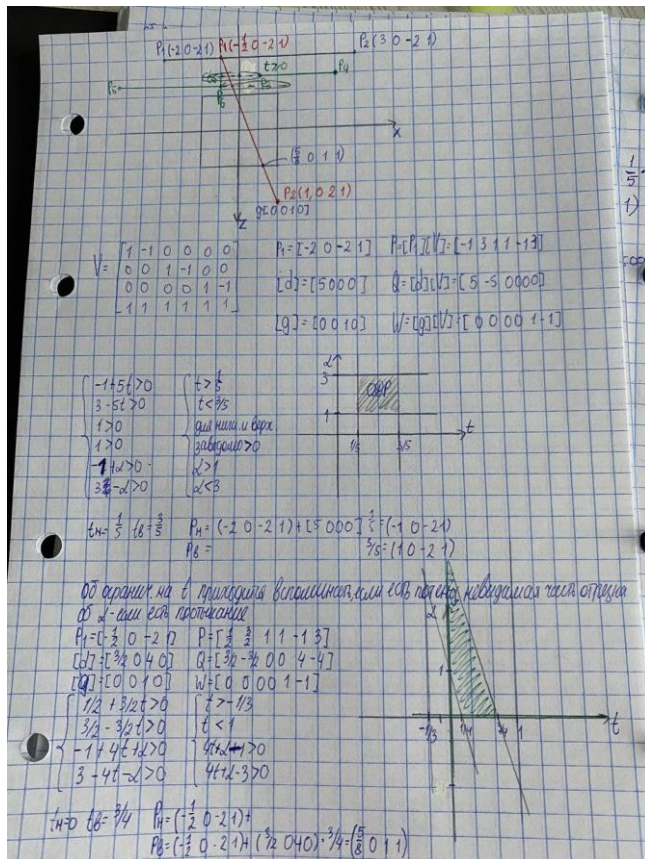 P₁(-2 0 -2 1) P₁(-½ 0 -2 1) P₂(3 0 -2 1)
t≥0 P₄
P₅
P₆
x
(5/8 0 1 1)
P₂(1, 0 2 1)
g[0 0 1 0]
z
V= [1 -1 0 0 0 0
0 0 1 -1 0 0
0 0 0 0 1 -1
1 1 1 1 1 1]
P₁=[-2 0 -2 1] P=[P₁][V]=[-1 3 1 1 -1 3]
[d]=[5 0 0 0] Q=[d][V]=[5 -5 0 0 0 0]
[g]=[0 0 1 0] W=[g][V]=[0 0 0 0 1 -1]
-1+5t>0 t>1/5
3-5t>0 t<3/5
1>0 для низа и верх.
1>0 заведомо>0
-1+α>0 α>1
3-α>0 α<3
α
3
ОДР
1
1/5 3/5 t
tн=1/5 tв=3/5 Pн=(-2 0 -2 1)+[5 0 0 0] 1/5=(-1 0 -2 1)
Pв= 3/5=(1 0 -2 1)
Об огранич на t приходится вспоминать, если есть невидимая часть отрезка
об α-если есть протыкание
P₁=[-½ 0 -2 1] P=[½ 3/2 1 1 -1 3]
[d]=[3/2 0 4 0] Q=[3/2 -3/2 0 0 4 -4]
[g]=[0 0 1 0] W=[0 0 0 0 1 -1]
1/2+3/2t>0 t>-1/3
3/2-3/2t>0 t<1
-1+4t+α>0 4t+α-1>0
3-4t-α>0 4t+α-3>0
α
1
-1/3 1/4 3/4 1 t
tн=0 tв=3/4 Pн=(-½ 0 -2 1)+
Pв=(-½ 0 -2 1)+(3/2 0 4 0)·3/4=(5/8 0 1 1)